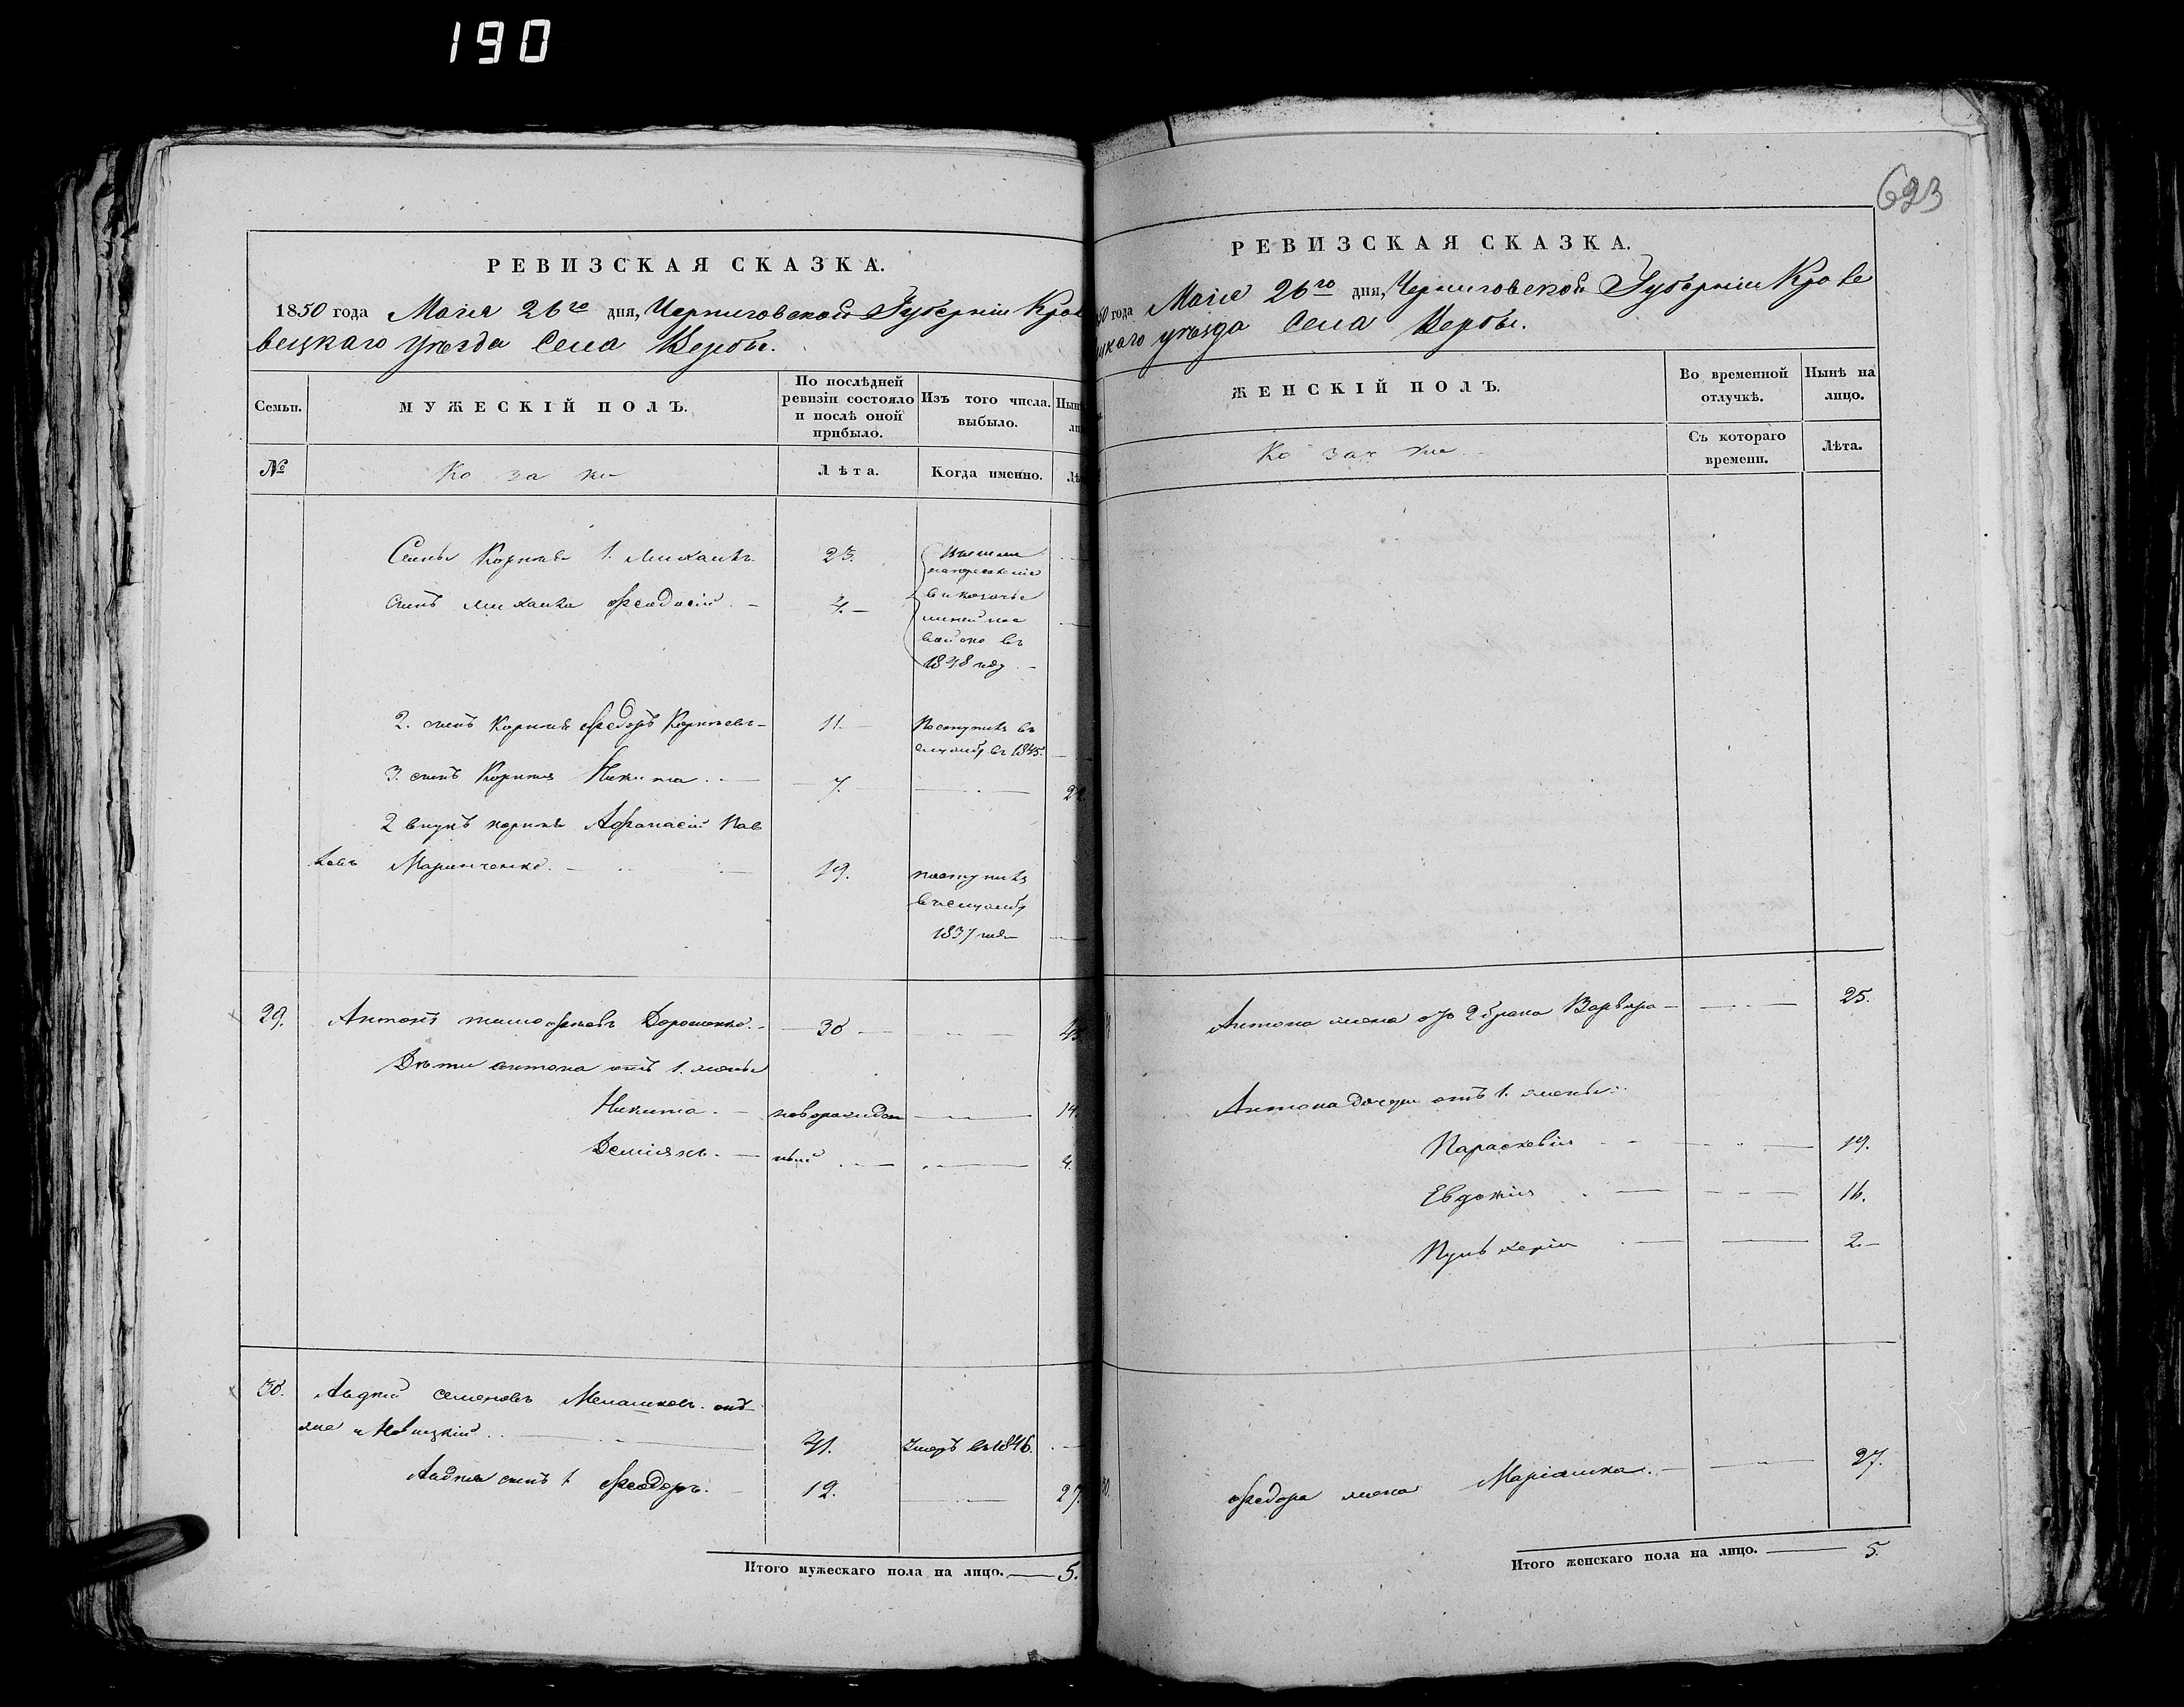 190
РЕВИЗСКАЯ СКАЗКА.
1850 года Маія 26го дня, Черниговской Губерніи Кроле
вецкаго уѣзда Села Вербы.
Семьи.
МУЖЕСКІЙ ПОЛЪ.
По послѣдней
ревизіи состояло
и послѣ оной
прибыло.
Изъ того числа
выбыло.
№
Козаки
Лѣта.
Когда именно.
Сынъ Корнѣя 1. Михаилъ
23.
сынъ Михаила Феодосій
4.
въ
1848 году
2. сынъ Корнѣя Федоръ Корнѣевъ
11.
Поступилъ въ
въ 1845.
3. сынъ Корнѣя Никита
7.
2 внукъ Корнѣя Афанасій Пав
ловъ Маринченко.
19.
поступилъ
1837 года
29.
Антонъ Тимофѣевъ Дорошенко.
30
Дѣти Антона отъ 1. жены
Никита.
новорожден
14.
Демьянъ.
ный
4.
30.
Авдѣй Семеновъ онъ
же и Новицкій
41.
Умеръ въ 1846.
Авдѣя сынъ 1 Феодоръ.
12.
27.
Итого мужескаго пола на лицо. 5.
623
РЕВИЗСКАЯ СКАЗКА.
50 года Маія 26го дня, Черниговской Губерніи Кроле
цкаго уѣзда Села Вербы.
ЖЕНСКІЙ ПОЛЪ.
Во временной
отлучкѣ.
Нынѣ на
лицо.
Козачки
Съ котораго
времени.
Лѣта.
Антона жена 2 брака Варвара
25.
Антона дочери отъ 1. жены:
Параскевія
19.
Евдокія
16.
Пульхерія
2
Федора жена Маріамна.
27.
Итого женскаго пола на лицо. 5.